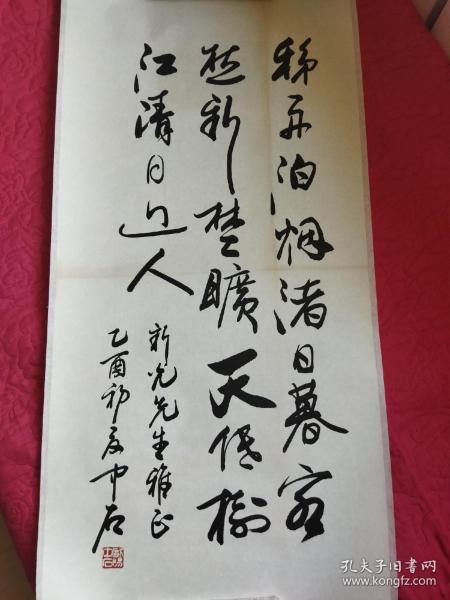 移舟泊烟渚日暮客
愁新埜曠天低樹
江清月近人
新光先生雅正
乙酉初夏中石
孔夫子旧书网
kongfz.com